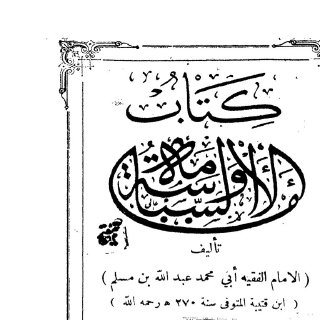 كِتَابُ
الإمامة والسياسة
تأليف
( الامام الفقيه أبي محمد عبد الله بن مسلم )
( ابن قتيبة المتوفى سنة ٢٧٠ ﻫ رحمه الله )